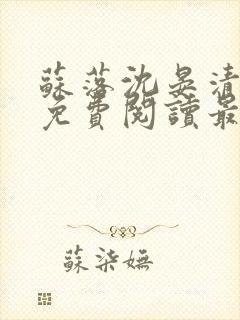 蘇落沈晏清
免費閱讀最
蘇柒嫵